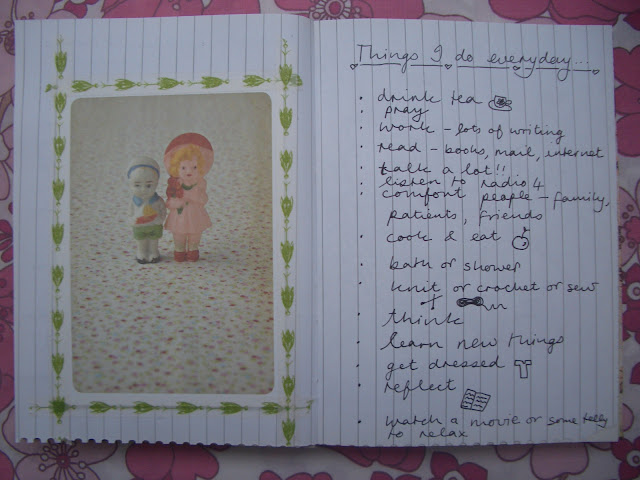 Things I do everyday...
• drink tea
• pray
• work - lots of writing
• read - books, mail, internet
• talk a lot!!
• listen to radio 4
• comfort people - family,
patients, friends
• cook & eat
• bath or shower
• knit or crochet or sew
• think
• learn new things
• get dressed
• reflect
• watch a movie or some telly
to relax